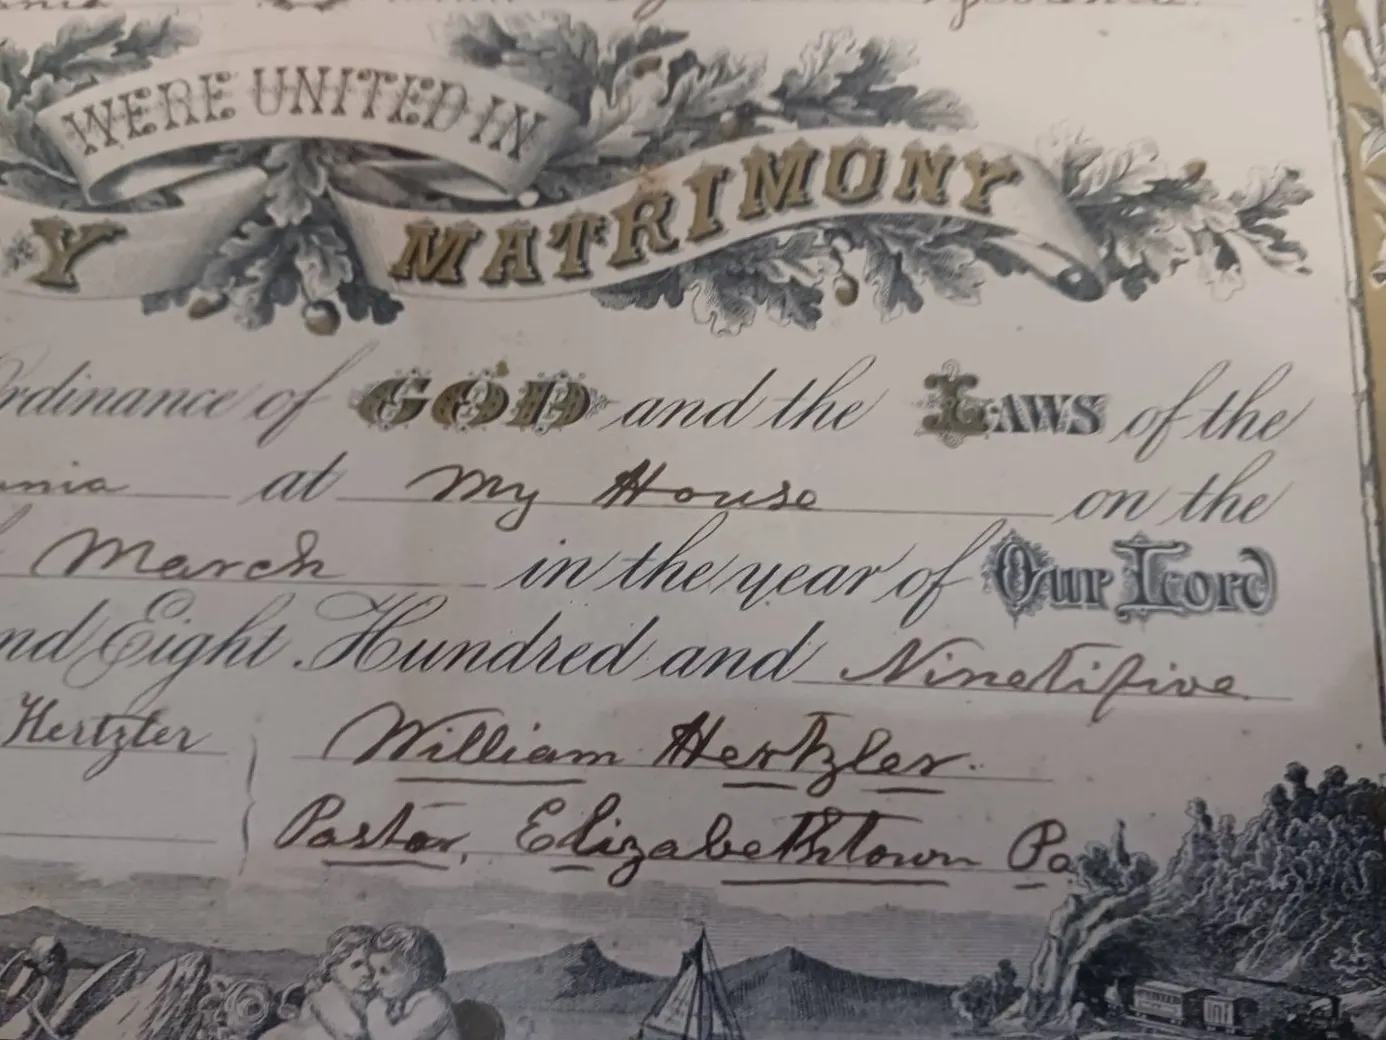 WERE UNITED IN
Y MATRIMONY
Ordinance of GOD and the LAWS of the
ania at My House on the
March in the year of Our Lord
nd Eight Hundred and Ninetifive
Hertzler William Hertzler.
Pastor, Elizabethtown Pa